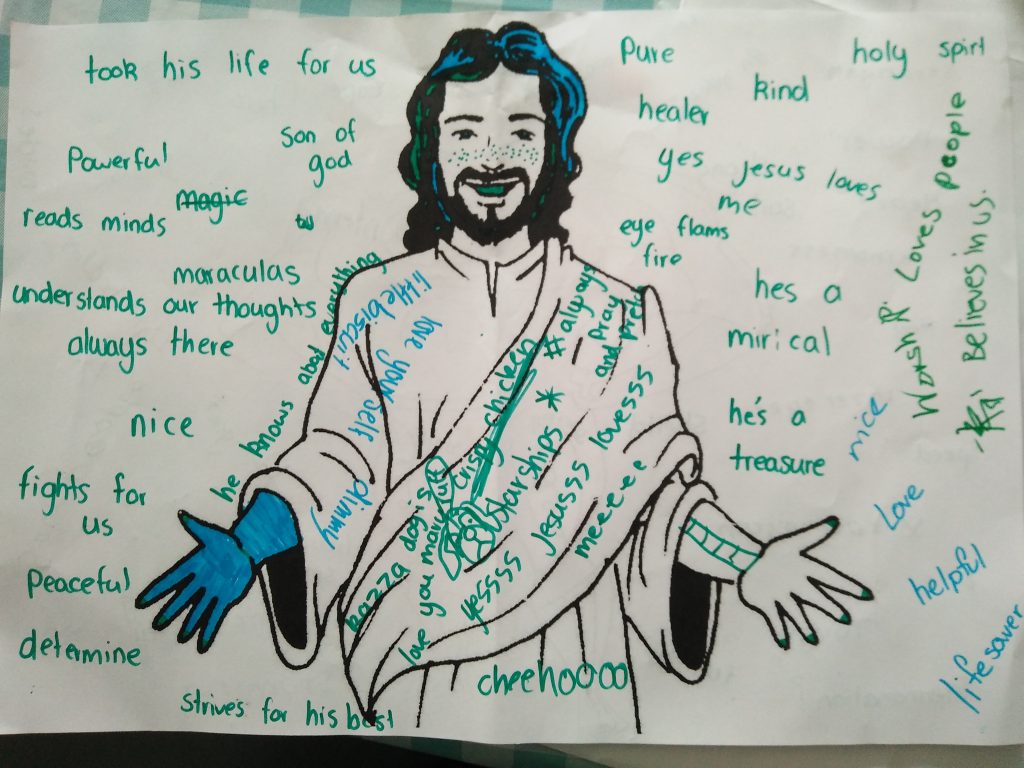 took his life for us
Powerful
Son of
god
reads minds
magic
maraculas
understands our thoughts
always there
he knows about everything
nice
fights for
us
Peaceful
determine
strives for his best
Pure
holy spirt
kind
healer
yes Jesus loves
me
eye flams
fire
hes a
mirical
he's a
treasure
WorshiP. Loves People
Believes in us.
nice
Love
helpful
lifesaver
little biscuit
love you self
kaza dog is
crispy chicken
love you manu
# always
Pray
and
starships *
yessss Jesusss lovesss
meeeee
cheehoooo